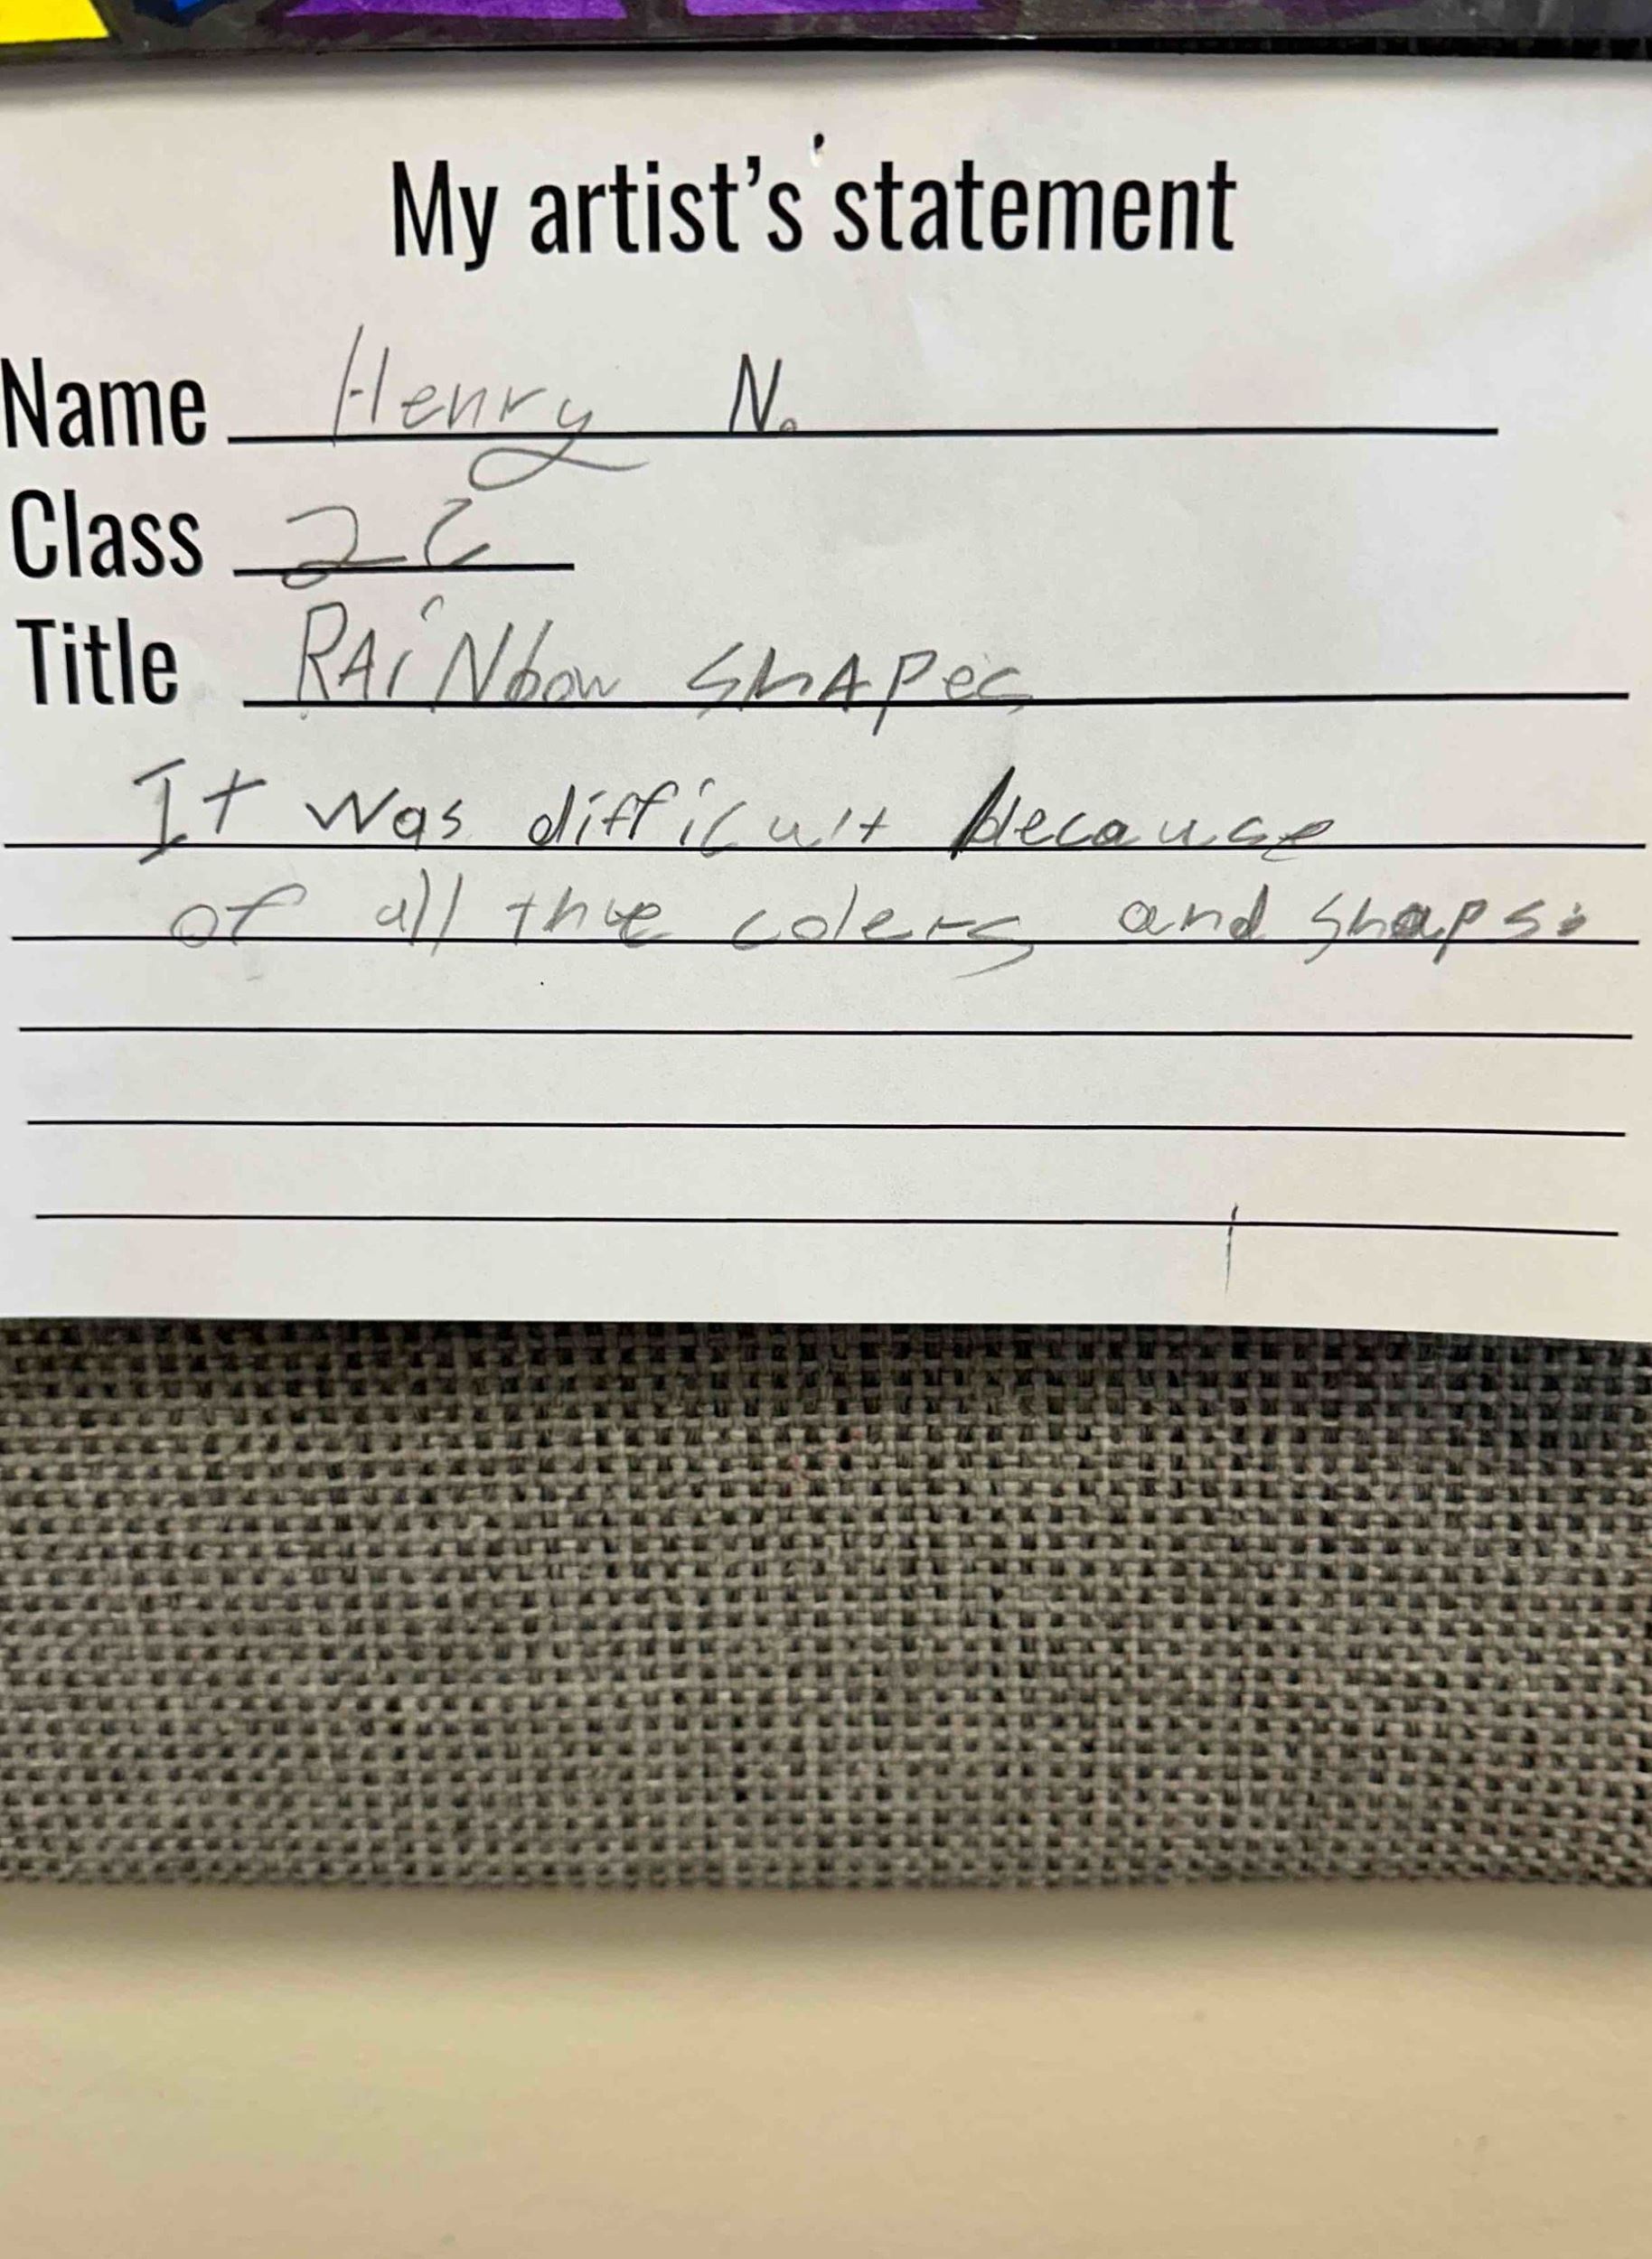 My artist's statement
Name Henry N.
Class 2C
Title RAiNbow SHAPes
It was difficult because
of all the colers and shaps.